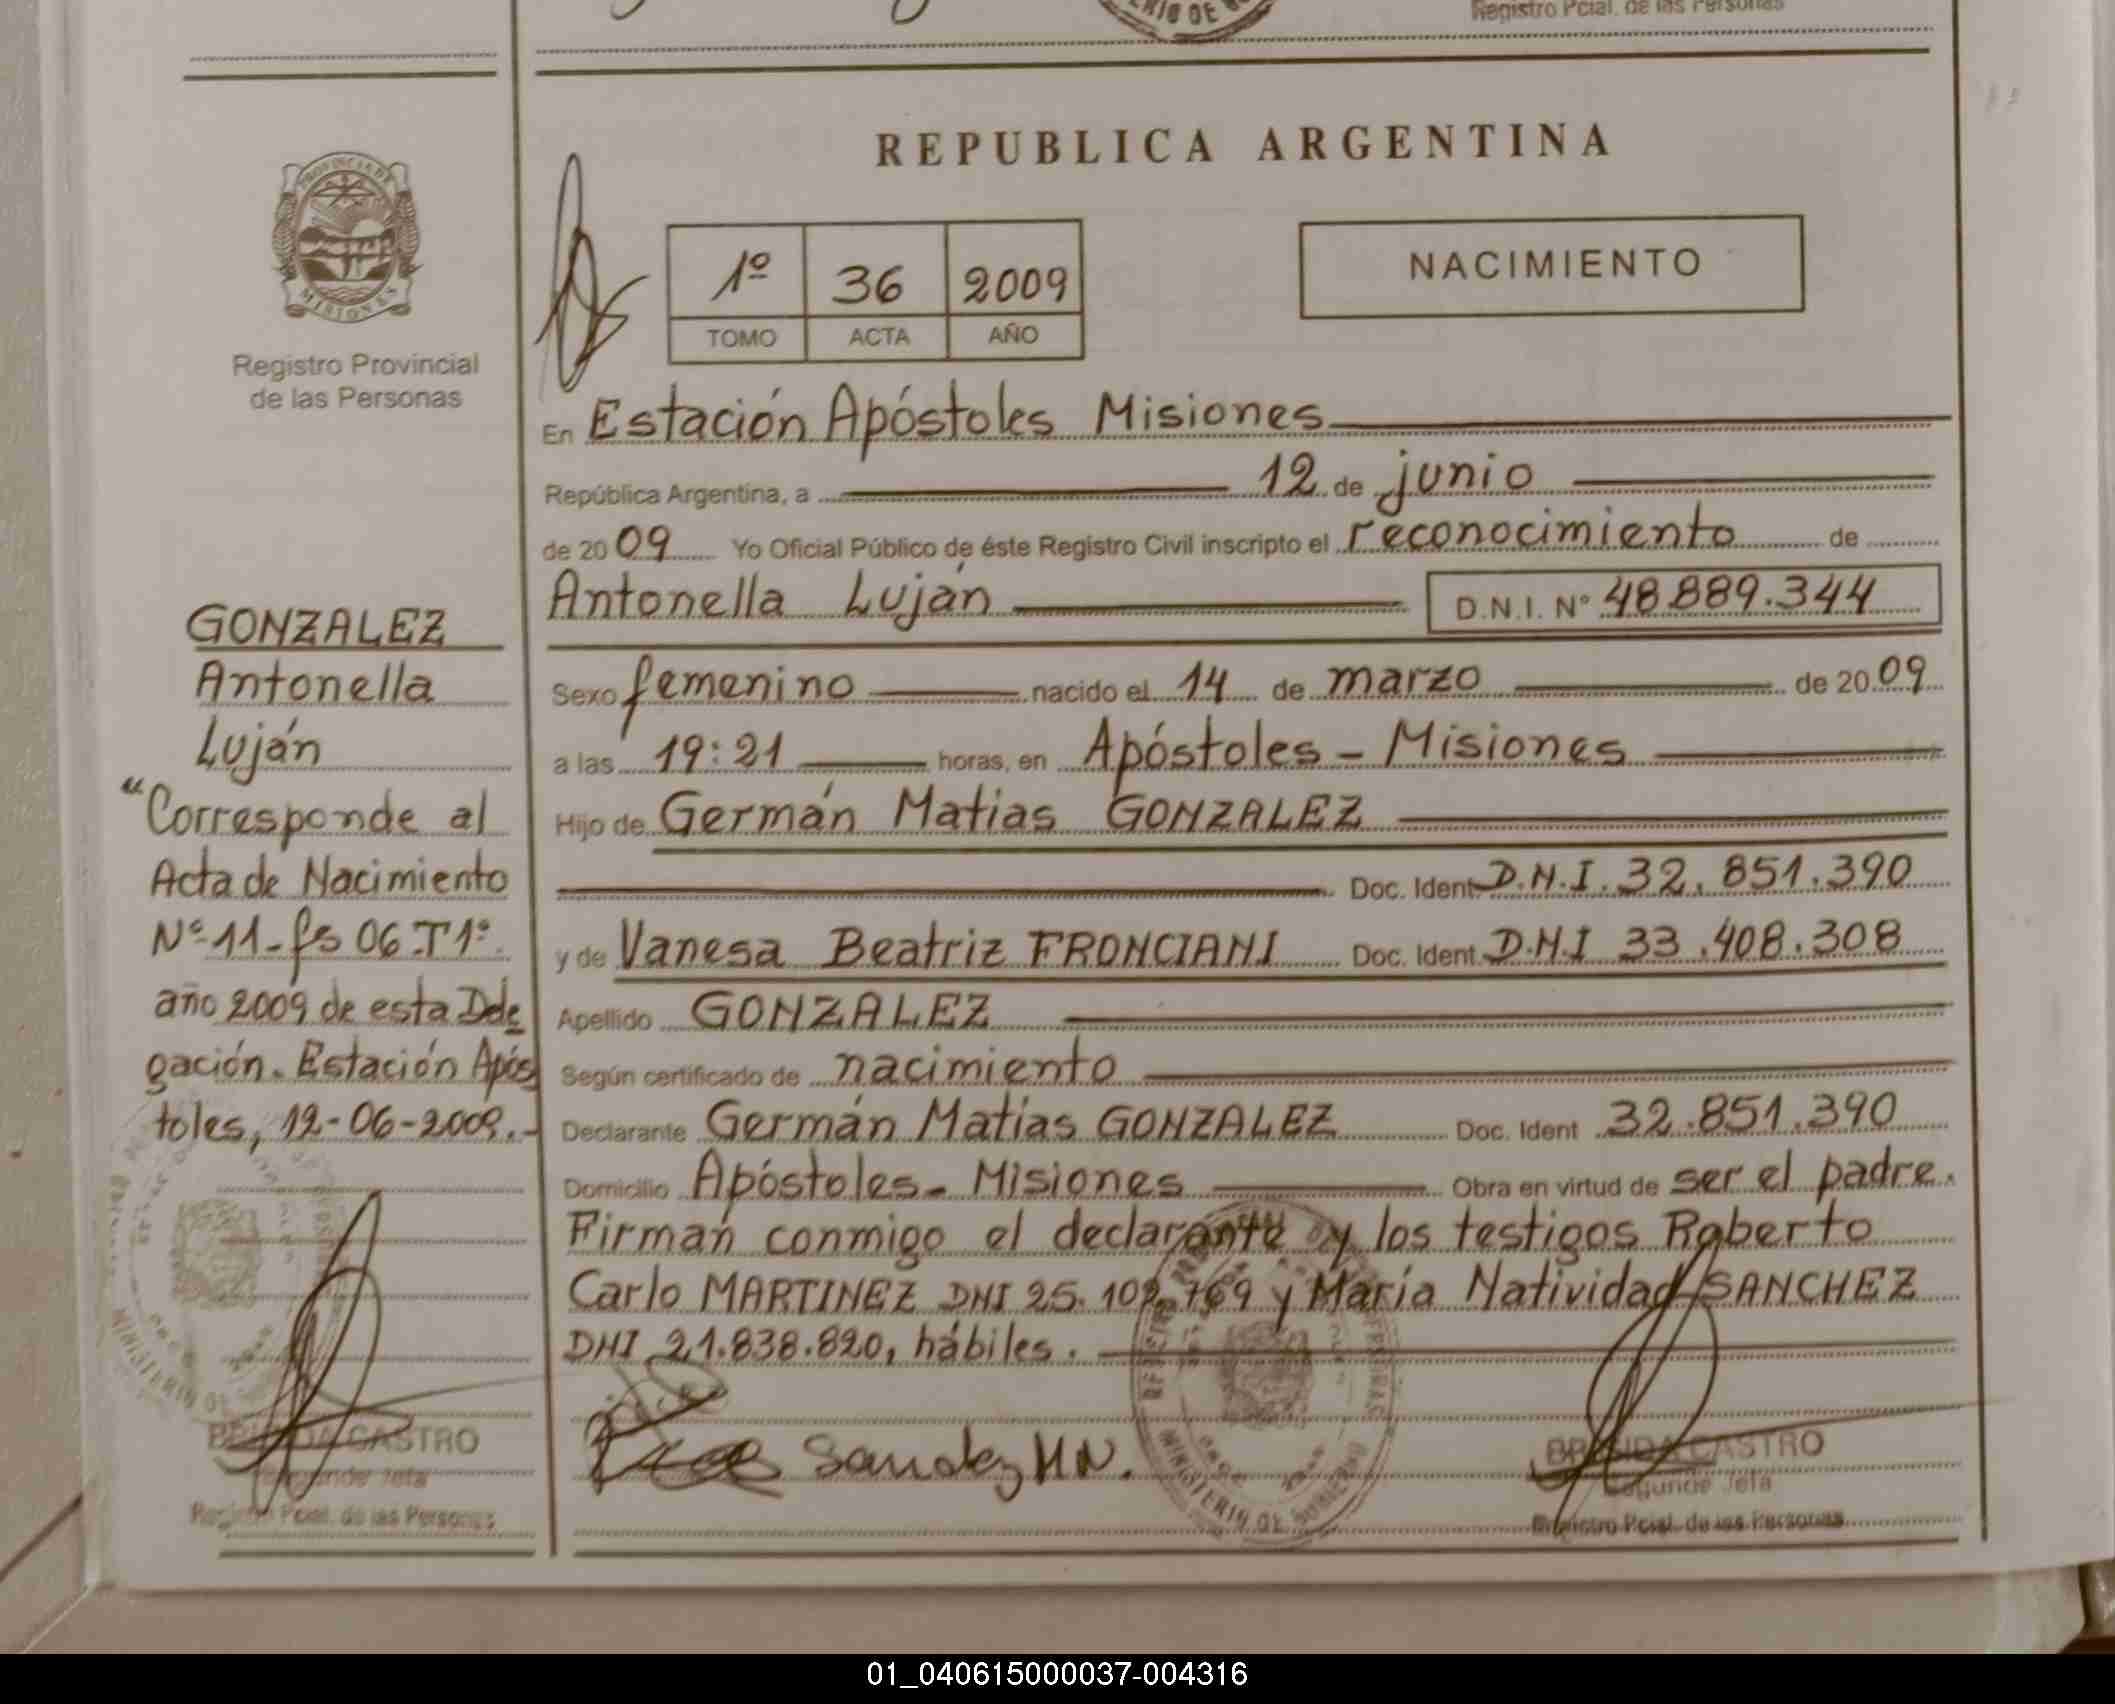 Registro Pcial. de las Personas
REPUBLICA ARGENTINA
PROVINCIA DE
MISIONES
Registro Provincial
de las Personas
1º 36 2009
TOMO ACTA AÑO
NACIMIENTO
En Estación Apóstoles Misiones
República Argentina, a 12 de junio
de 2009 Yo Oficial Público de éste Registro Civil inscripto el reconocimiento de
Antonella Luján D.N.I. Nº 48.889.344
Sexo femenino nacido el 14 de marzo de 2009
a las 19:21 horas, en Apóstoles - Misiones
Hijo de Germán Matias GONZALEZ
Doc. Ident. D.N.I. 32.851.390
y de Vanesa Beatriz FRONCIANI Doc. Ident. D.N.I 33.408.308
Apellido GONZALEZ
Según certificado de nacimiento
Declarante Germán Matías GONZALEZ Doc. Ident 32.851.390
Domicilio Apóstoles - Misiones Obra en virtud de ser el padre.
Firman conmigo el declarante y los testigos Roberto
Carlo MARTINEZ DNI 25.102.769 y María Natividad SANCHEZ
DNI 21.838.820, hábiles.
Sanchez M N.
MINISTERIO DE GOBIERNO
BRENDA CASTRO
Segundo Jefa
Registro Pcial. de las Personas
GONZALEZ
Antonella
Luján
"Corresponde al
Acta de Nacimiento
Nº 11 - fs 06 T1º
año 2009 de esta Dele
gación. Estación Após
toles, 12-06-2009.-
BRENDA CASTRO
Segundo Jefa
Registro Pcial. de las Personas
01_040615000037-004316